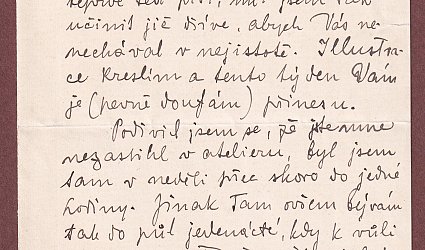 teprve teď píši, měl jsem tak
učinit již dříve, abych Vás ne-
nechával v nejistotě. Illustra-
ce kreslím a tento týden Vám
je (pevně doufám) přinesu.
Podivil jsem se, že jste mne
nezastihl v atelieru, byl jsem
tam v neděli přec skoro do jedné
hodiny. Jinak tam ovšem bývám
tak do půl jedenácté, kdy k vůli